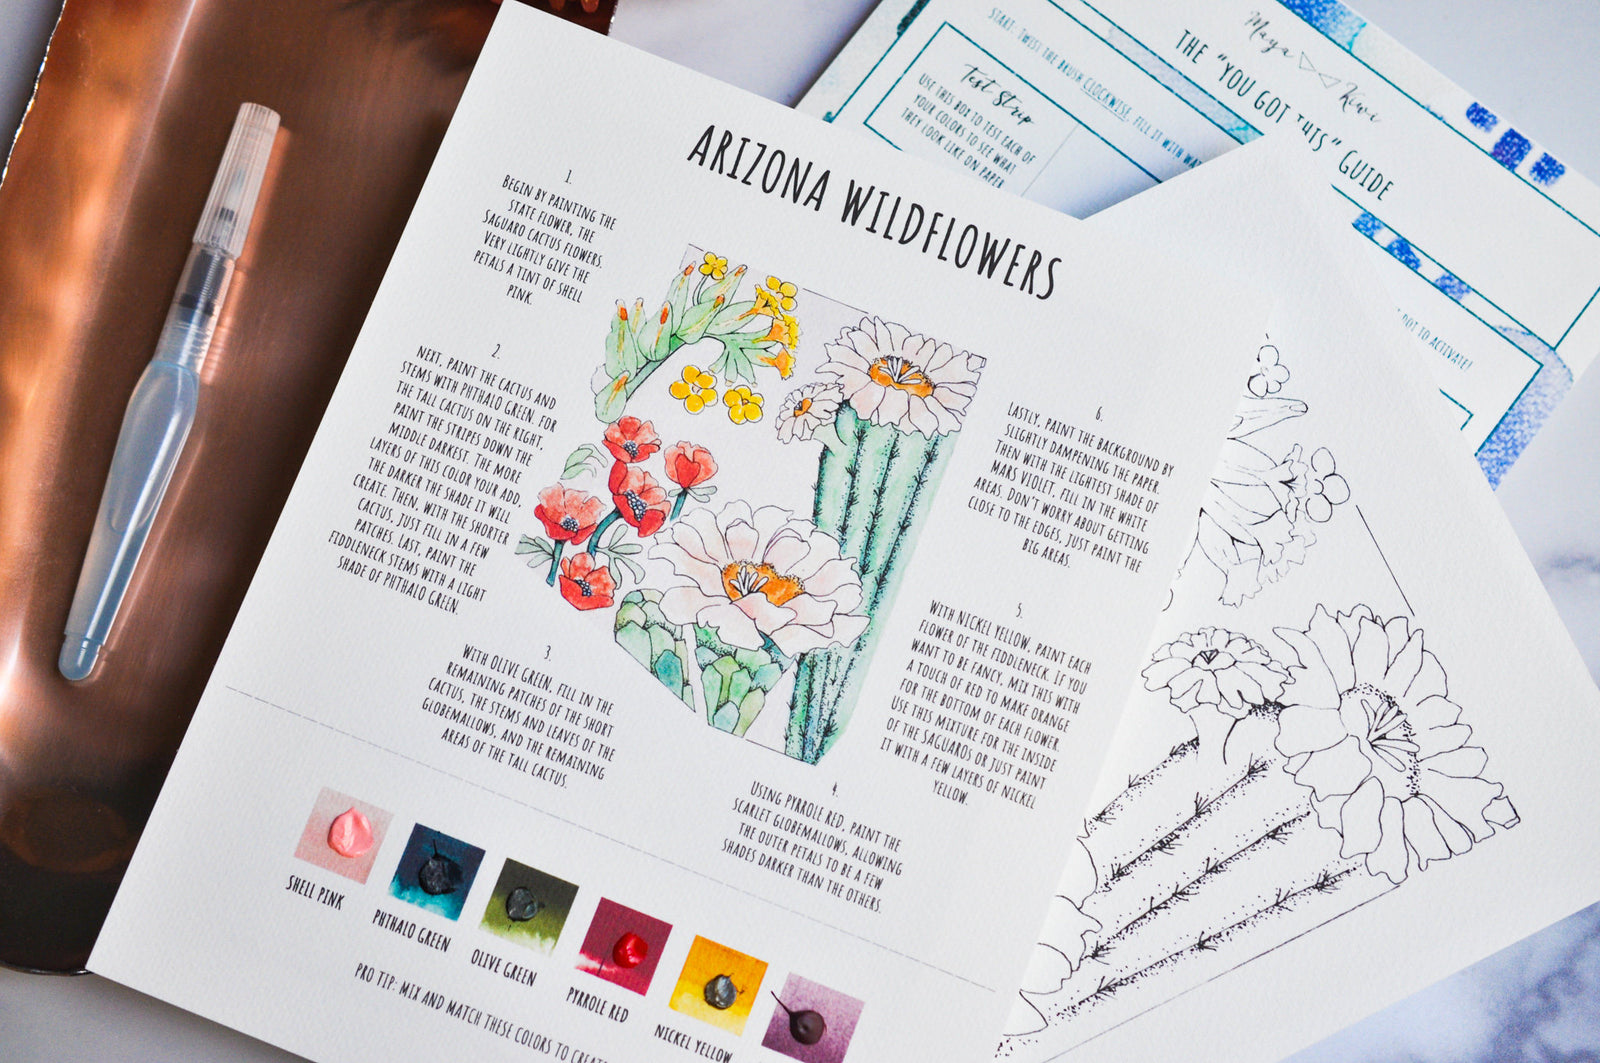 ARIZONA WILDFLOWERS
1.
BEGIN BY PAINTING THE
STATE FLOWER, THE
SAGUARO CACTUS FLOWERS.
VERY LIGHTLY GIVE THE
PETALS A TINT OF SHELL
PINK.
2.
NEXT, PAINT THE CACTUS AND
STEMS WITH PHTHALO GREEN. FOR
THE TALL CACTUS ON THE RIGHT,
PAINT THE STRIPES DOWN THE
MIDDLE DARKEST. THE MORE
LAYERS OF THIS COLOR YOUR ADD,
THE DARKER THE SHADE IT WILL
CREATE. THEN, WITH THE SHORTER
CACTUS, JUST FILL IN A FEW
PATCHES. LAST, PAINT THE
FIDDLENECK STEMS WITH A LIGHT
SHADE OF PHTHALO GREEN.
3.
WITH OLIVE GREEN, FILL IN THE
REMAINING PATCHES OF THE SHORT
CACTUS, THE STEMS AND LEAVES OF THE
GLOBEMALLOWS, AND THE REMAINING
AREAS OF THE TALL CACTUS.
4.
USING PYRROLE RED, PAINT THE
SCARLET GLOBEMALLOWS, ALLOWING
THE OUTER PETALS TO BE A FEW
SHADES DARKER THAN THE OTHERS.
5.
WITH NICKEL YELLOW, PAINT EACH
FLOWER OF THE FIDDLENECK. IF YOU
WANT TO BE FANCY, MIX THIS WITH
A TOUCH OF RED TO MAKE ORANGE
FOR THE BOTTOM OF EACH FLOWER.
USE THIS MIXTURE FOR THE INSIDE
OF THE SAGUAROS OR JUST PAINT
IT WITH A FEW LAYERS OF NICKEL
YELLOW.
6.
LASTLY, PAINT THE BACKGROUND BY
SLIGHTLY DAMPENING THE PAPER.
THEN WITH THE LIGHTEST SHADE OF
MARS VIOLET, FILL IN THE WHITE
AREAS. DON'T WORRY ABOUT GETTING
CLOSE TO THE EDGES, JUST PAINT THE
BIG AREAS.
SHELL PINK
PHTHALO GREEN
OLIVE GREEN
PYRROLE RED
NICKEL YELLOW
PRO TIP: MIX AND MATCH THESE COLORS TO CREATE
Maya Kiwi
THE "YOU GOT THIS" GUIDE
START: TWIST THE BRUSH CLOCKWISE, FILL IT WITH WAT
Test Strip
USE THIS BOX TO TEST EACH OF
YOUR COLORS TO SEE WHAT
THEY LOOK LIKE ON PAPER
DOT TO ACTIVATE!